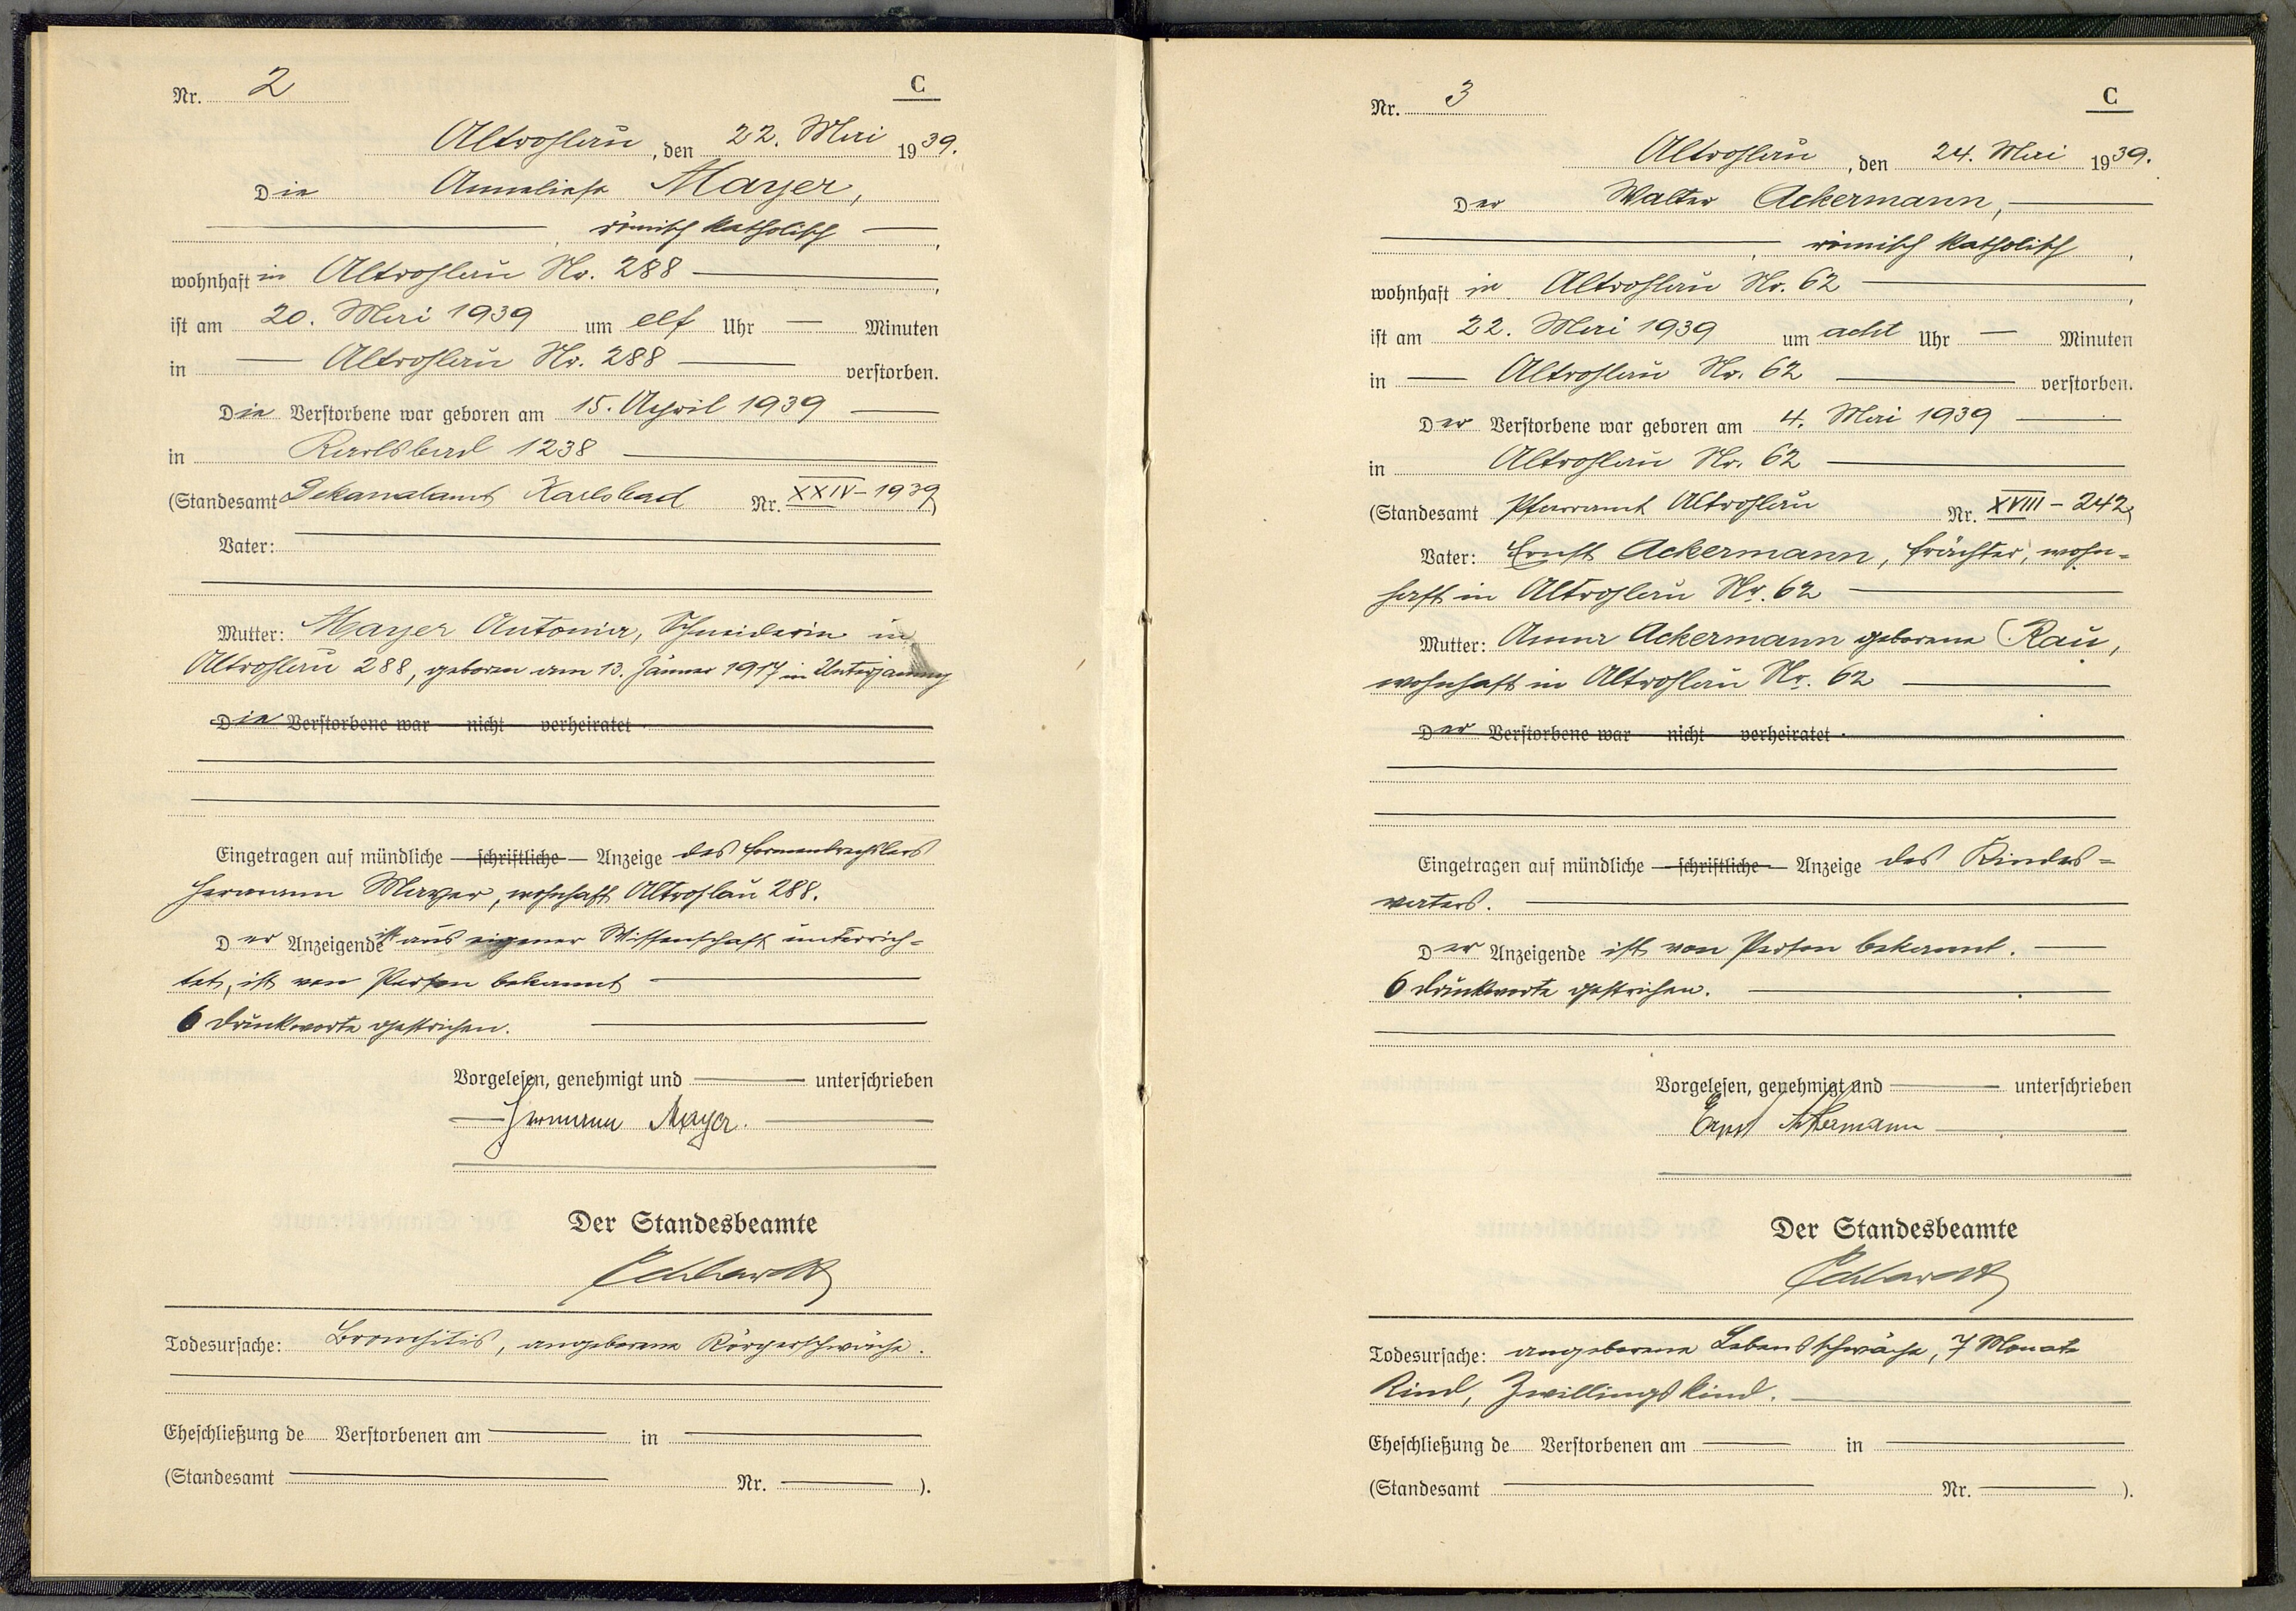 Nr. 2
C
Altrohlau, den 22. Mai 1939.
Die Anneliese Mayer,
römisch katholisch,
wohnhaft in Altrohlau Nr. 288,
ist am 20. Mai 1939 um elf Uhr — Minuten
in — Altrohlau Nr. 288 — verstorben.
Die Verstorbene war geboren am 15. April 1939
in Karlsbad 1238
(Standesamt Dekanalamt Karlsbad Nr. XXIV - 1939)
Vater:
Mutter: Mayer Antonia, Schneiderin in
Altrohlau 288, geboren am 13. Jänner 1917 in
Die Verstorbene war — nicht — verheiratet
Eingetragen auf mündliche — schriftliche — Anzeige des
Hermann Mayer, wohnhaft Altrohlau 288.
Der Anzeigende ist aus eigener Wissenschaft unterrich=
tet, ist von Person bekannt
6 Druckworte gestrichen.
Vorgelesen, genehmigt und — unterschrieben
Hermann Mayer.
Der Standesbeamte
Todesursache: Bronchitis, angeborene Körperschwäche.
Eheschließung de Verstorbenen am — in —
(Standesamt — Nr. — ).
Nr. 3
C
Altrohlau, den 24. Mai 1939.
Der Walter Ackermann,
römisch katholisch,
wohnhaft in Altrohlau Nr. 62,
ist am 22. Mai 1939 um acht Uhr — Minuten
in — Altrohlau Nr. 62 — verstorben.
Der Verstorbene war geboren am 4. Mai 1939
in Altrohlau Nr. 62
(Standesamt Pfarramt Altrohlau Nr. XVIII - 242)
Vater: Ernst Ackermann, Frächter, wohn=
haft in Altrohlau Nr. 62
Mutter: Anna Ackermann geborene Rau,
wohnhaft in Altrohlau Nr. 62
Der Verstorbene war — nicht — verheiratet.
Eingetragen auf mündliche — schriftliche — Anzeige des Kindes=
vaters.
Der Anzeigende ist von Person bekannt.
6 Druckworte gestrichen.
Vorgelesen, genehmigt und — unterschrieben
Ernst Ackermann
Der Standesbeamte
Todesursache: angeborene Lebensschwäche, 7 Monate
Kind, Zwillingskind.
Eheschließung de Verstorbenen am — in —
(Standesamt — Nr. — ).